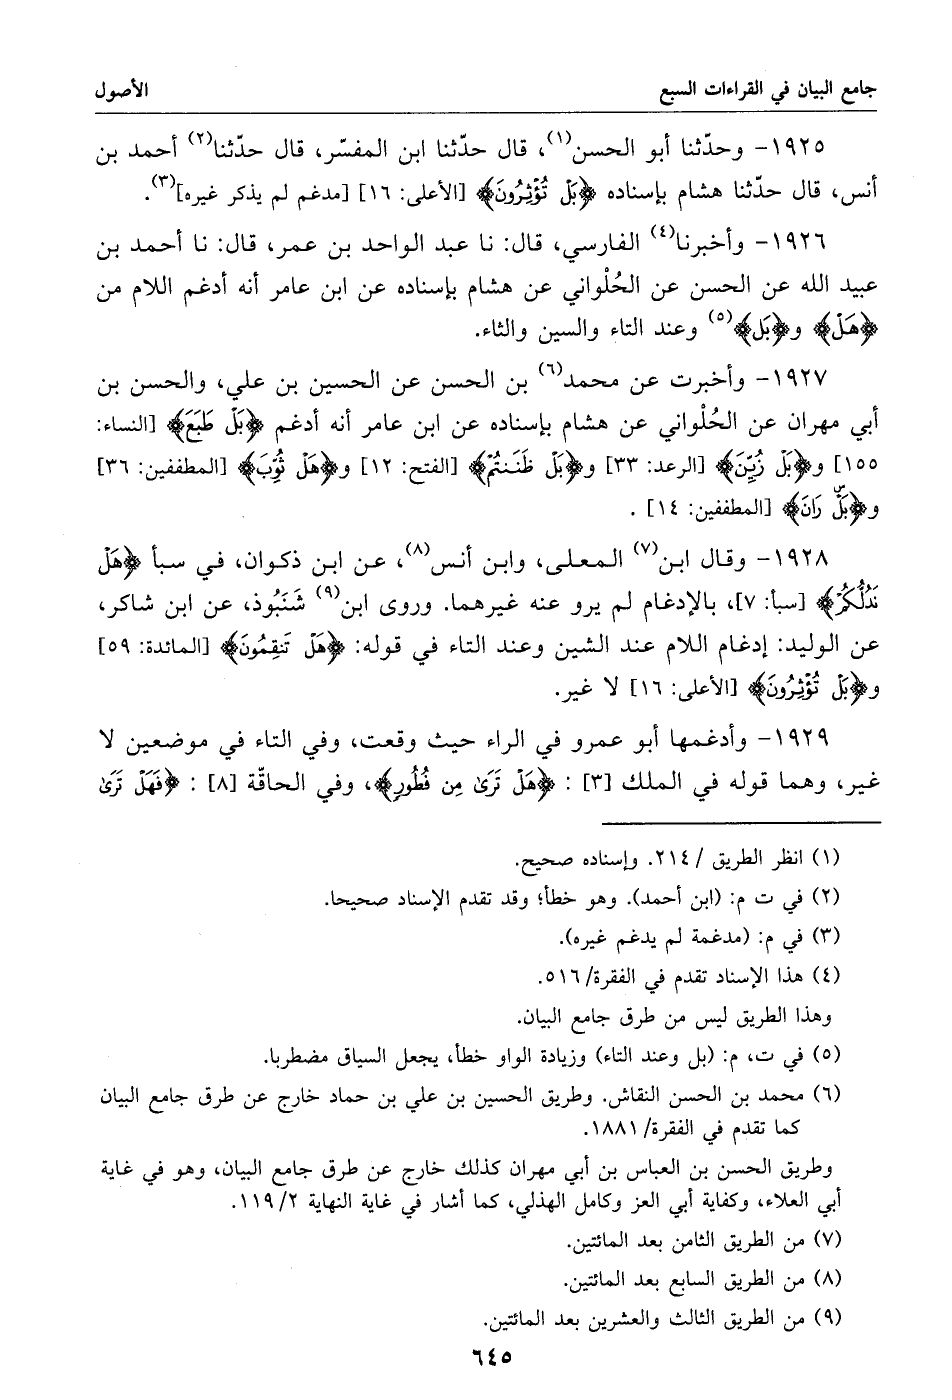 جامع البيان في القراءات السبع
الأصول
١٩٢٥- وحدّثنا أبو الحسن(١)، قال حدّثنا ابن المفسّر، قال حدّثنا(٢) أحمد بن
أنس، قال حدّثنا هشام بإسناده ﴿بَلْ تُؤْثِرُونَ﴾ [الأعلى: ١٦] [مدغم لم يذكر غيره](٣).
١٩٢٦- وأخبرنا(٤) الفارسي، قال: نا عبد الواحد بن عمر، قال: نا أحمد بن
عبيد الله عن الحسن عن الحُلْواني عن هشام بإسناده عن ابن عامر أنه أدغم اللام من
﴿هَلْ﴾ و﴿بَل﴾(٥) وعند التاء والسين والثاء.
١٩٢٧- وأخبرت عن محمد(٦) بن الحسن عن الحسين بن علي، والحسن بن
أبي مهران عن الحُلْواني عن هشام بإسناده عن ابن عامر أنه أدغم ﴿بَلْ طَبَعَ﴾ [النساء:
١٥٥] و﴿بَلْ زُيِّنَ﴾ [الرعد: ٣٣] و﴿بَلْ ظَنَنتُمْ﴾ [الفتح: ١٢] و﴿هَلْ ثُوِّبَ﴾ [المطففين: ٣٦]
و﴿بَلْۜ رَانَ﴾ [المطففين: ١٤] .
١٩٢٨- وقال ابن(٧) المعلى، وابن أنس(٨)، عن ابن ذكوان، في سبأ ﴿هَلْ
نَدُلُّكُمْ﴾ [سبأ: ٧]، بالإدغام لم يرو عنه غيرهما. وروى ابن(٩) شَنَبُوذ، عن ابن شاكر،
عن الوليد: إدغام اللام عند الشين وعند التاء في قوله: ﴿هَلْ تَنقِمُونَ﴾ [المائدة: ٥٩]
و﴿بَلْ تُؤْثِرُونَ﴾ [الأعلى: ١٦] لا غير.
١٩٢٩- وأدغمها أبو عمرو في الراء حيث وقعت، وفي التاء في موضعين لا
غير، وهما قوله في الملك [٣] : ﴿هَلْ تَرَىٰ مِن فُطُورٍ﴾، وفي الحاقّة [٨] : ﴿فَهَلْ تَرَىٰ
(١) انظر الطريق /٢١٤. وإسناده صحيح.
(٢) في ت م: (ابن أحمد). وهو خطأ؛ وقد تقدم الإسناد صحيحا.
(٣) في م: (مدغمة لم يدغم غيره).
(٤) هذا الإسناد تقدم في الفقرة/٥١٦.
وهذا الطريق ليس من طرق جامع البيان.
(٥) في ت، م: (بل وعند التاء) وزيادة الواو خطأ، يجعل السياق مضطربا.
(٦) محمد بن الحسن النقاش. وطريق الحسين بن علي بن حماد خارج عن طرق جامع البيان
كما تقدم في الفقرة/ ١٨٨١.
وطريق الحسن بن العباس بن أبي مهران كذلك خارج عن طرق جامع البيان، وهو في غاية
أبي العلاء، وكفاية أبي العز وكامل الهذلي، كما أشار في غاية النهاية ١١٩/٢.
(٧) من الطريق الثامن بعد المائتين.
(٨) من الطريق السابع بعد المائتين.
(٩) من الطريق الثالث والعشرين بعد المائتين.
٦٤٥